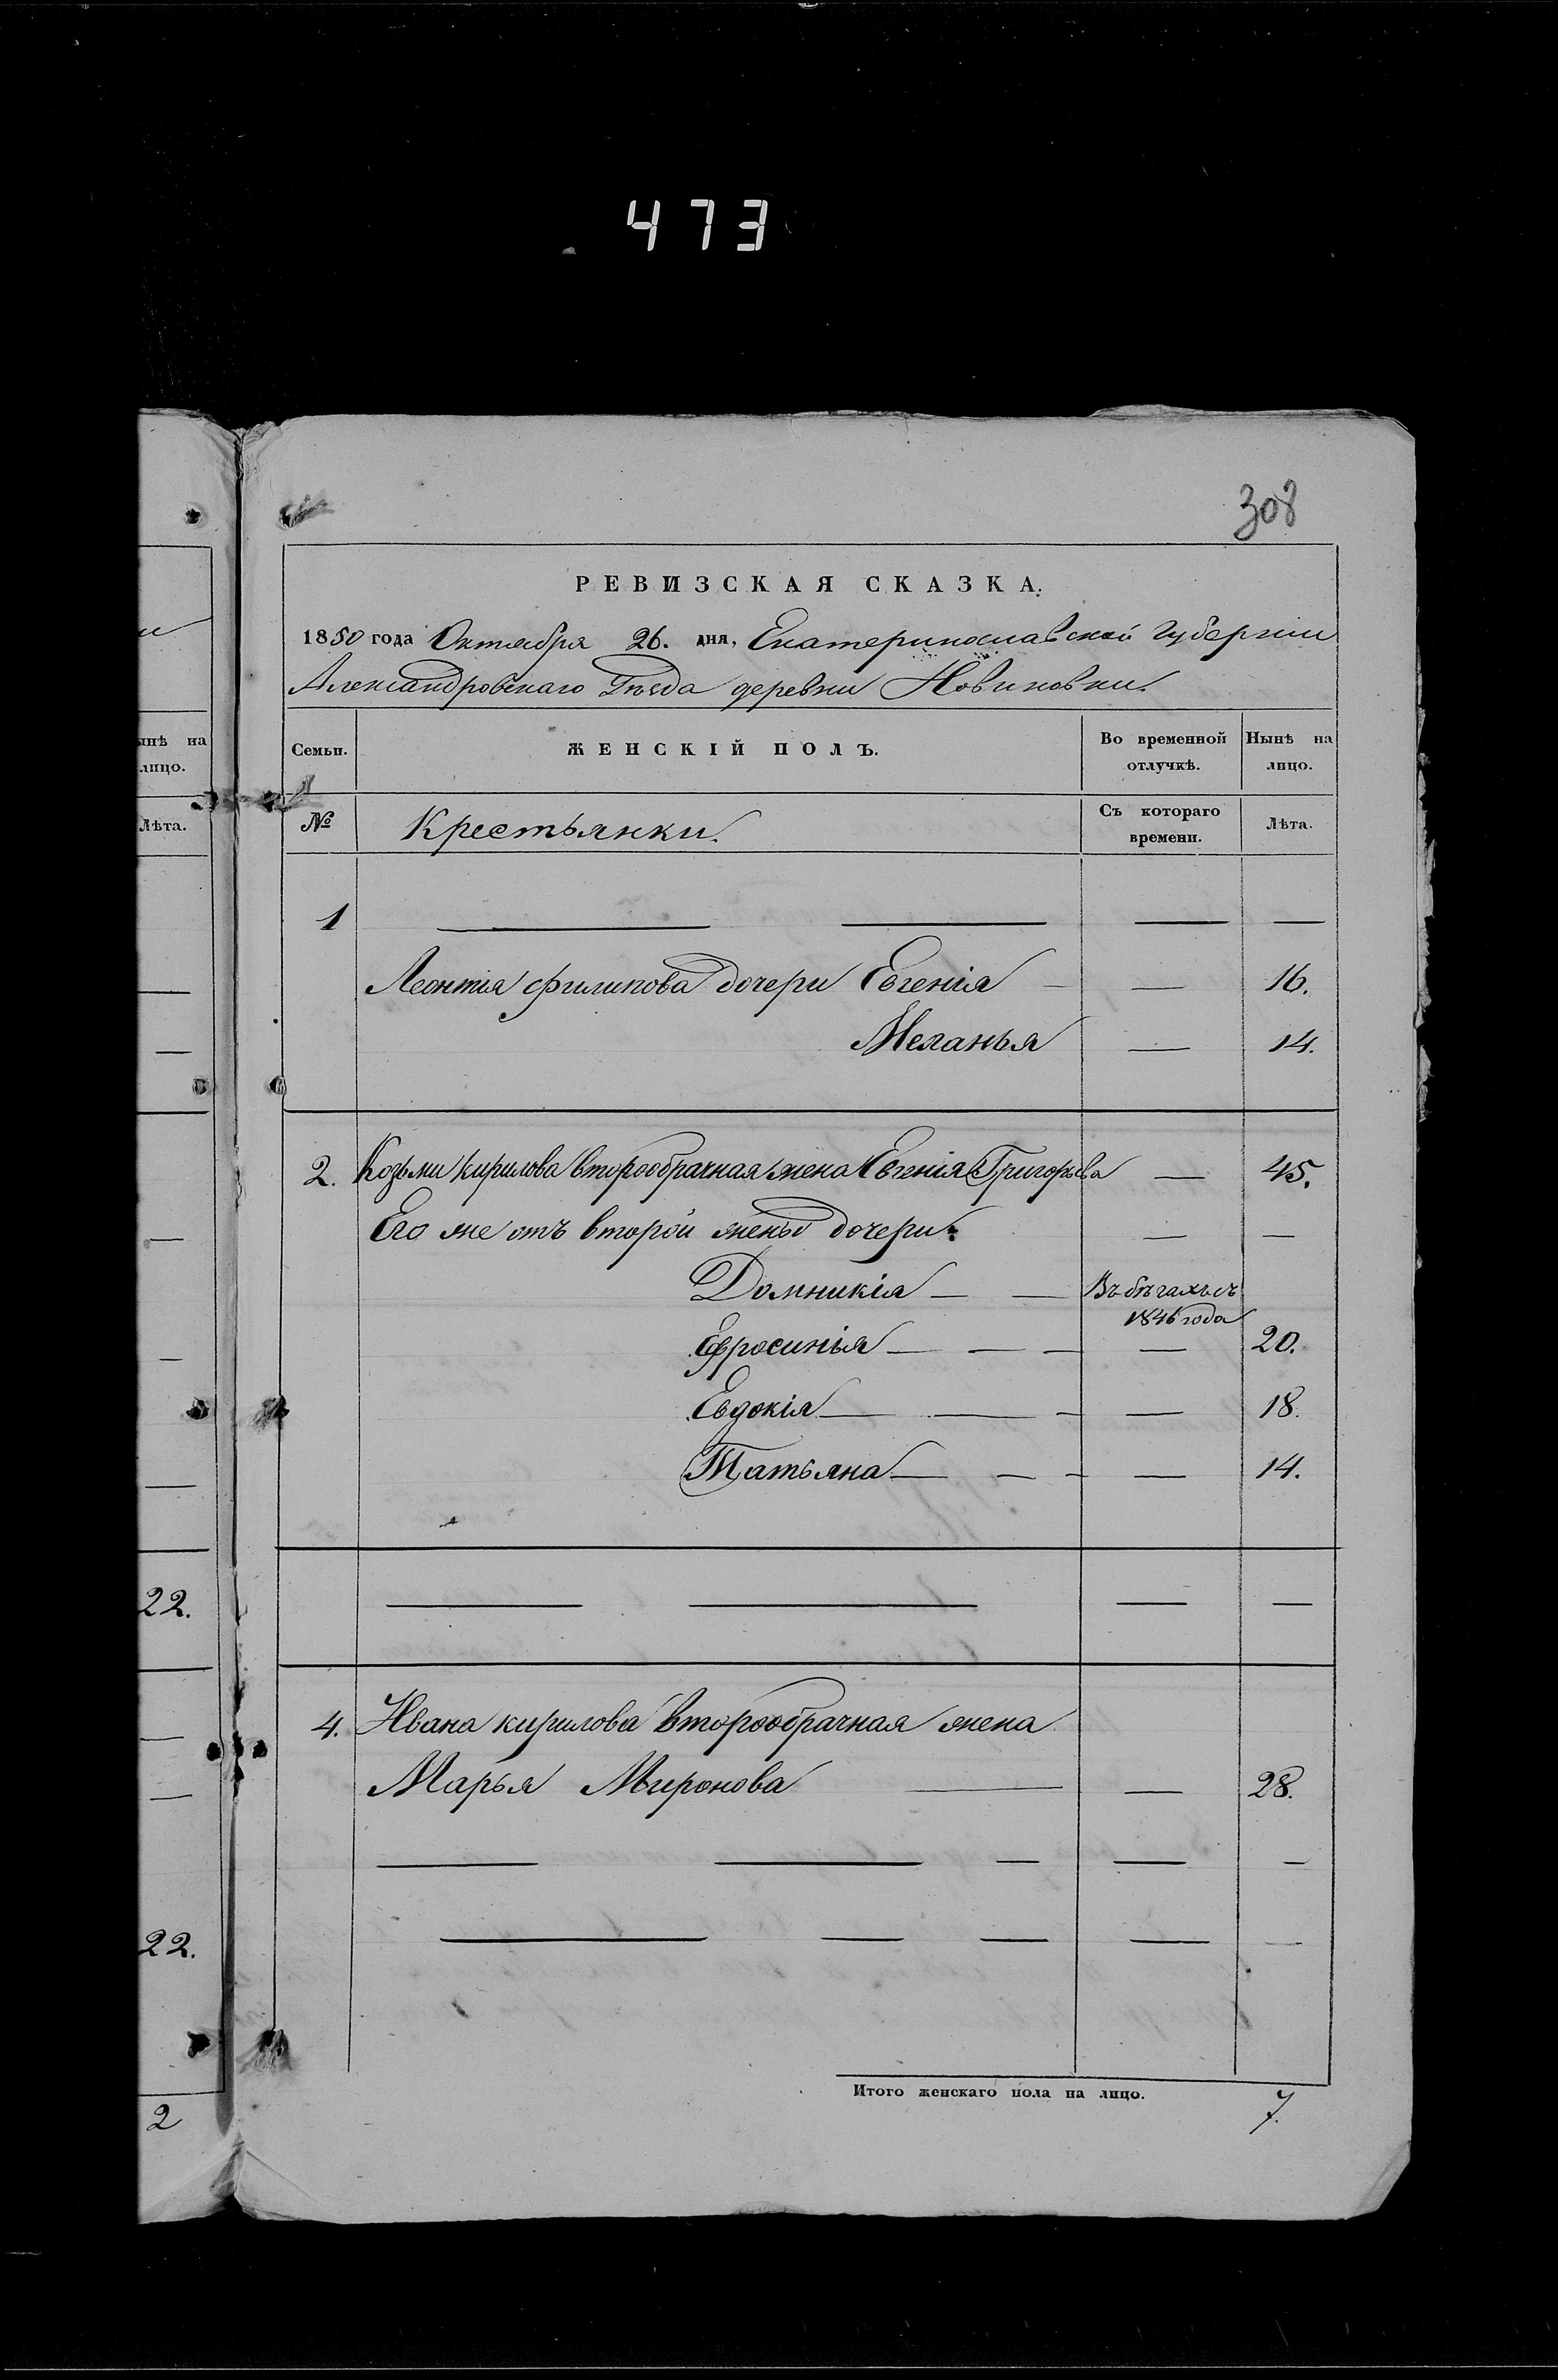 473
308
РЕВИЗСКАЯ СКАЗКА.
1850 года Октября 26. дня, Екатеринославской Губернии
Александровскаго Уѣзда деревни Новиновки.
Семьи. ЖЕНСКІЙ ПОЛЪ. Во временной отлучкѣ. Нынѣ на лицо.
№ Крестьянки. Съ котораго времени. Лѣта.
1 — — — —
Леонтія Филипова дочери Евгенія — — 16.
Меланья — 14.
2. Козьми Кирилова второобрачная жена Евгенія Григорьева — 45.
Его же отъ второй жены дочери: — —
Домникія — — Въ бѣгахъ съ
1846 года
Ефросинья — — — — 20.
Евдокія — — — — 18.
Татьяна — — — — 14.
— — — —
4. Ивана Кирилова второобрачная жена
Марья Миронова — — 28.
— — — — —
— — — — —
Итого женскаго пола на лицо. 7.
ынѣ на
лицо.
Лѣта.
22.
22.
2